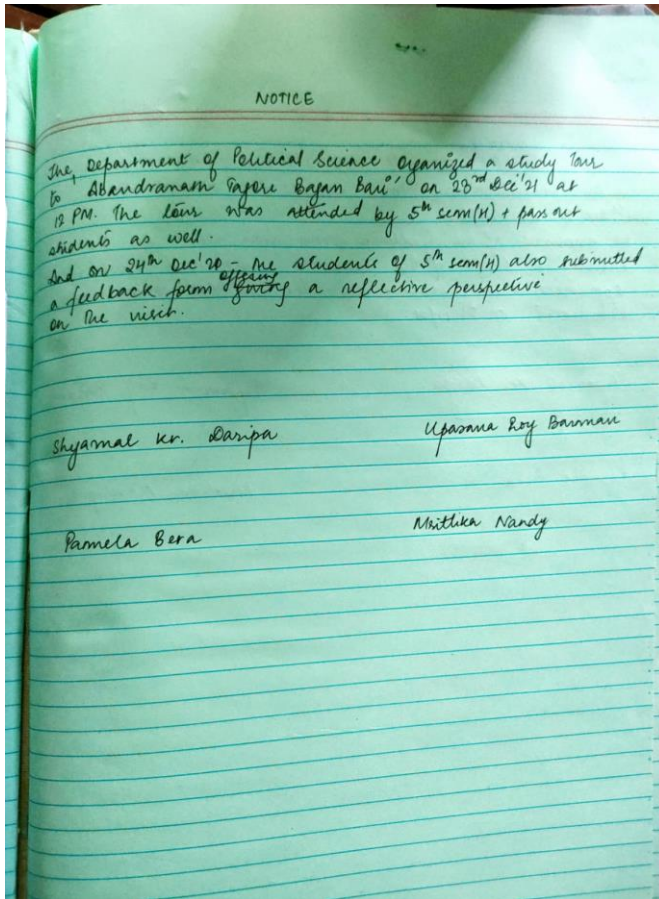 NOTICE
The, Department of Political Science organized a study tour
to ' Abandranath Tagore Bagan Bari' on 23rd Dec'21 at
12 PM. The tour was attended by 5th sem(H) + pass out
students as well.
And on 24th Dec'20 - the students of 5th sem(H) also submitted
a feedback form offering a reflective perspective
on the visit.
Shyamal Kr. Daripa
Upasana Roy Barman
Pamela Bera
Mrittika Nandy